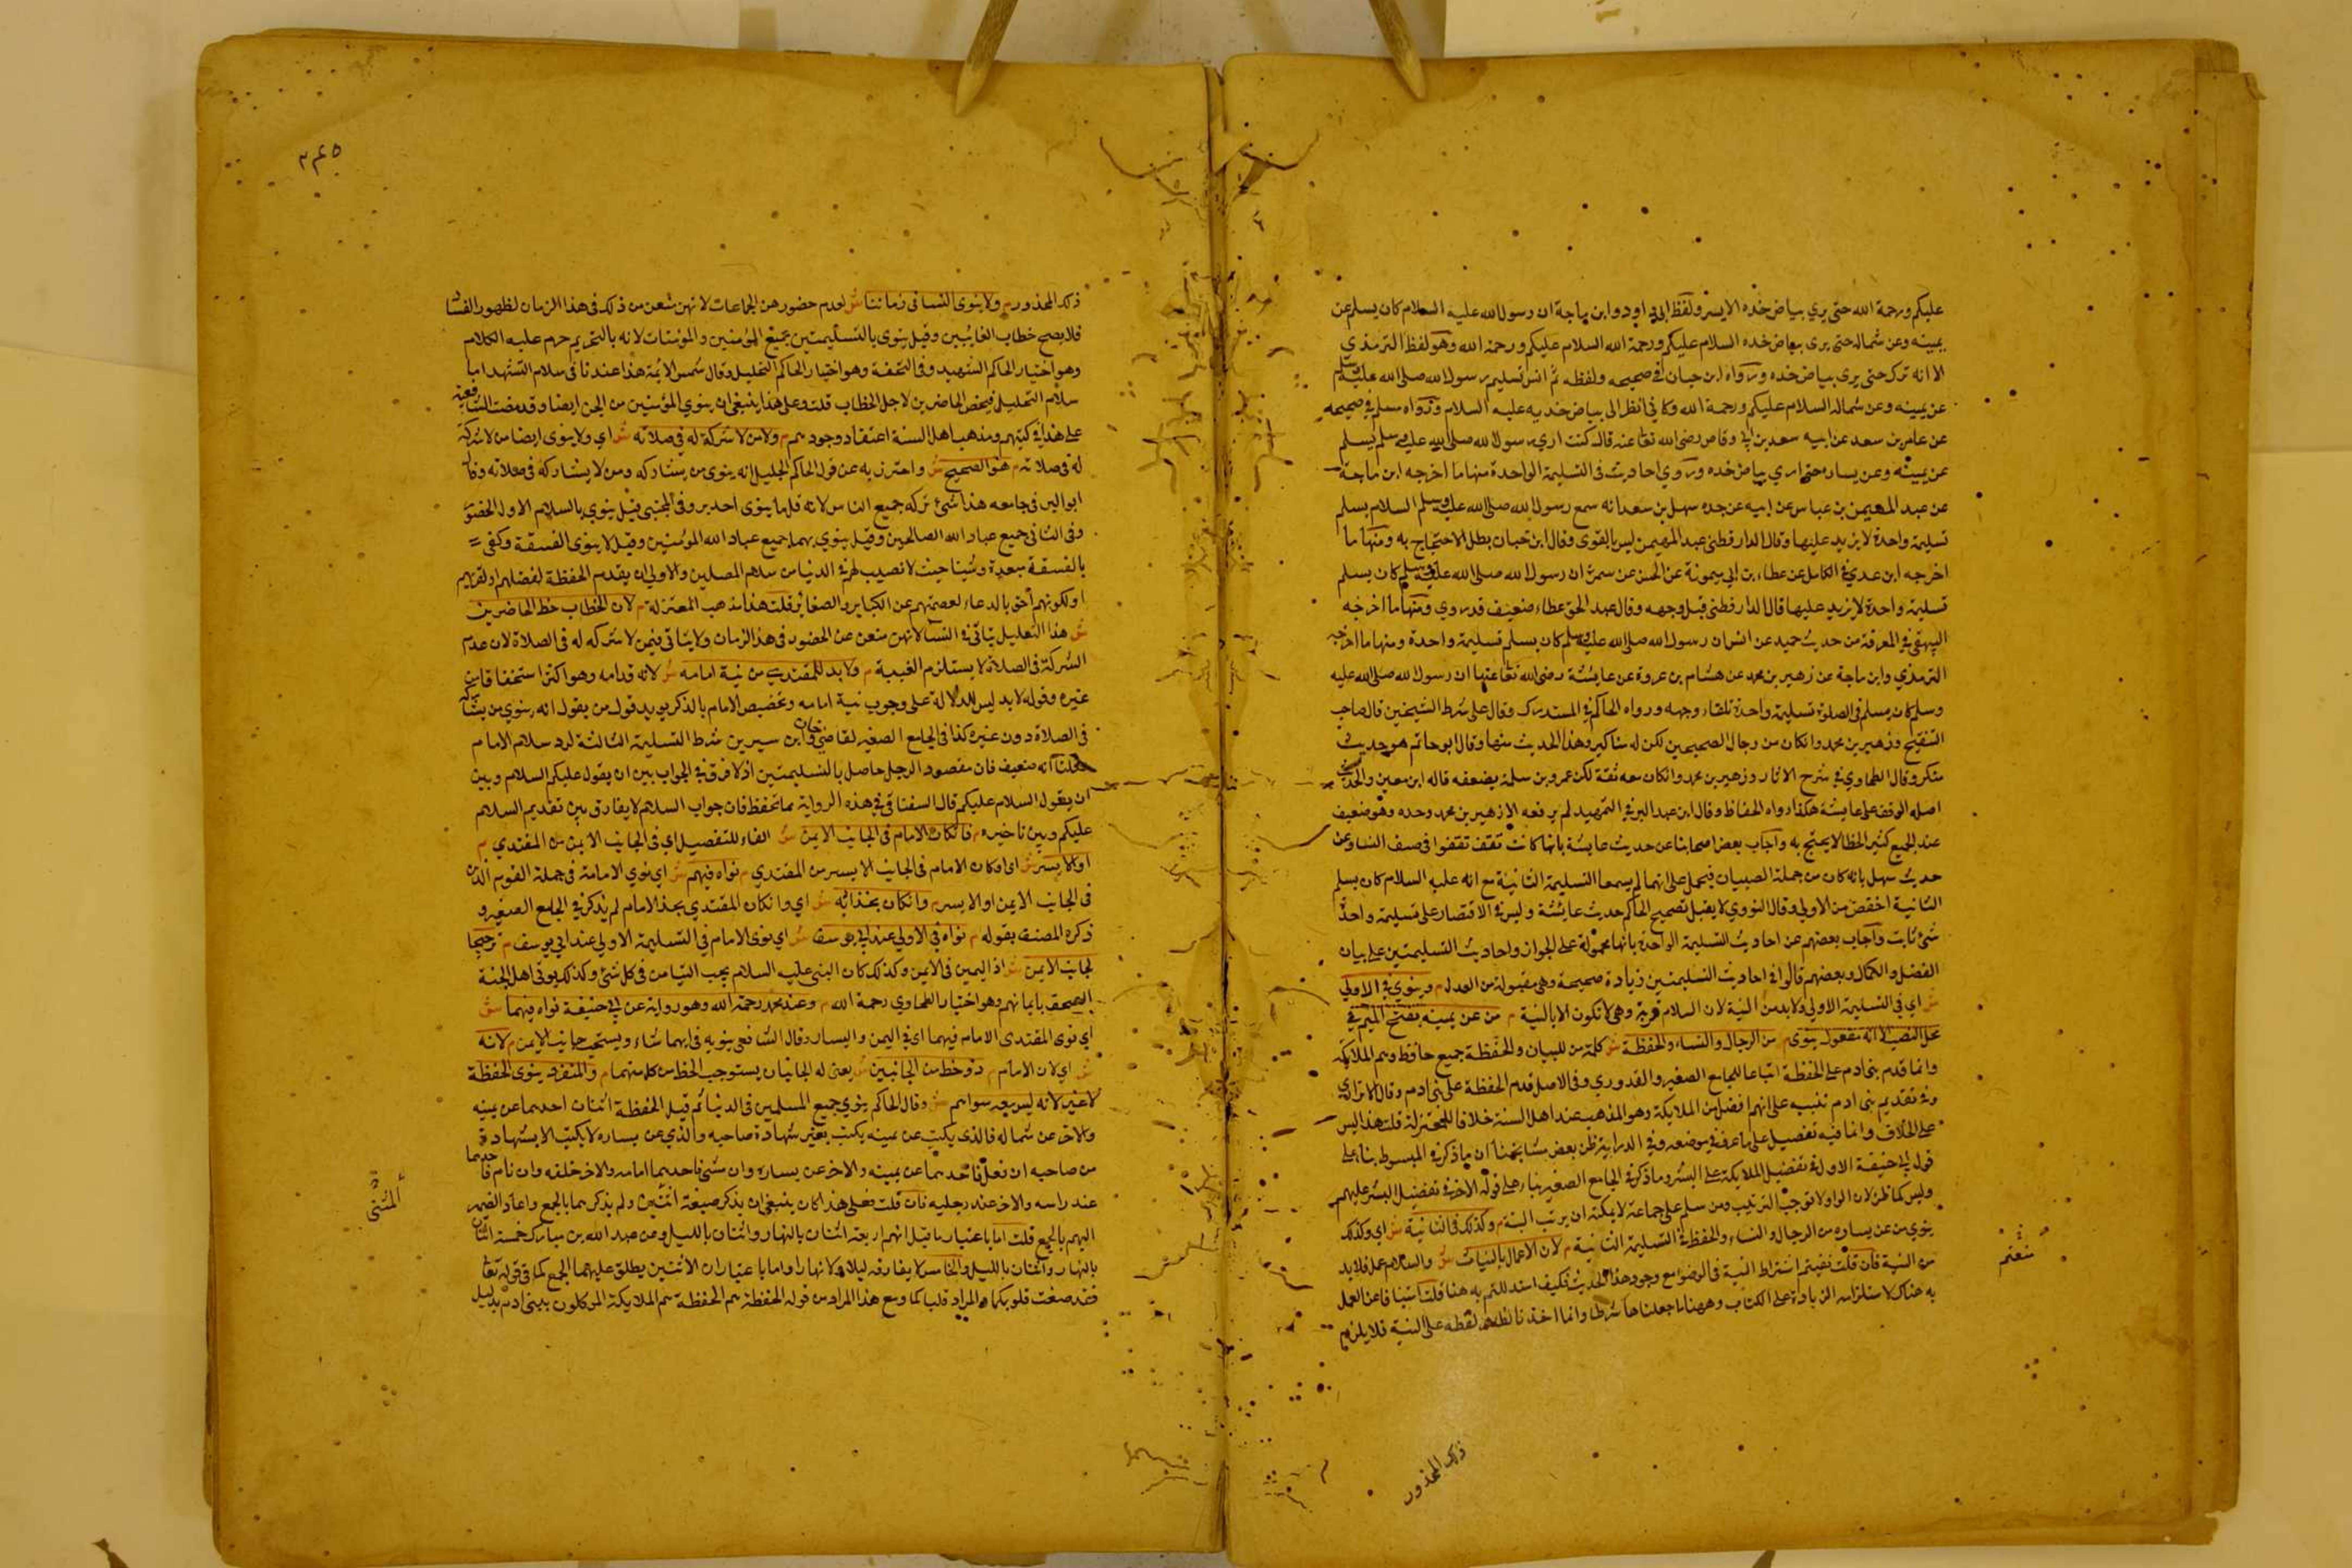 عليكم ورحمة الله حتى يري بياض خده الايسر ولفظ ابي داود وابن ماجة ان رسول الله عليه السلام كان يسلم عن
يمينه وعن شماله حتى يرى بياض خده السلام عليكم ورحمة الله السلام عليكم ورحمة الله وهو لفظ الترمذي
الا انه ترك حتى يرى بياض خده ورواه ابن حبان في صحيحه ولفظه ثم تسليم رسول الله صلى الله عليه وسلم
عن يمينه وعن شماله السلام عليكم ورحمة الله وكاني انظر الى بياض خديه عليه السلام ورواه مسلم في صحيحه
عن عامر بن سعد عن ابيه سعد بن ابي وقاص رضى الله تعا عنه قال كنت اري رسول الله صلى الله عليه وسلم يسلم
عن يمينه وعن يساره حتى اري بياض خده وروي احاديث في التسليمة الواحدة منها ما اخرجه ابن ماجة
عن عبد المهيمن بن عباس عن ابيه عن جده سهل بن سعد انه سمع رسول الله صلى الله عليه وسلم السلام يسلم
تسليمة واحدة لا يزيد عليها وقال الدارقطنى عبد المهيمن ليس بالقوى وقال ابن حبان بطل الاحتجاج به ومنها ما
اخرجه ابن عدي في الكامل عن عطاء بن ابي ميمونة عن الحسن عن سمرة ان رسول الله صلى الله عليه وسلم كان يسلم
تسليمة واحدة لا يزيد عليها قال الدارقطنى قبل وجهه وقال عبد الحق عطاء ضعيف قدروي ومنها ما اخرجه
البيهقي في المعرفة من حديث حميد عن انس ان رسول الله صلى الله عليه وسلم كان يسلم تسليمة واحدة ومنها ما اخرجه
الترمذي وابن ماجة عن زهير بن محمد عن هشام بن عروة عن عايشة رضى الله تعا عنها ان رسول الله صلى الله عليه
وسلم كان يسلم في الصلوة تسليمة واحدة تلقاء وجهه ورواه الحاكم في المستدرك وقال على شرط الشيخين قال صاحب
التنقيح وزهير بن محمد وان كان من رجال الصحيحين لكن له مناكير وهذا الحديث منها وقال ابو حاتم هو حديث
منكر وقال الطحاوي في شرح الاثار وزهير بن محمد وان كان معه ثقة لكن عمرو بن سلمة يضعفه قاله ابن معين والحديث
اصله الوقف على عايشة هكذا رواه الحفاظ وقال ابن عبد البر في التمهيد لم يرفعه الا زهير بن محمد وحده وهو ضعيف
عند الجميع كثير الخطا لا يحتج به واجاب بعض اصحابنا عن حديث عايشة بانها كانت تقف في صف النساء وعن
حديث سهل بانه كان من جملة الصبيان فيحمل على انهما لم يسمعا التسليمة الثانية مع انه عليه السلام كان يسلم
الثانية اخفض من الاولي وقال النووي لا يقبل تصحيح الحاكم حديث عائشة وليس في الاقتصار على تسليمة واحدة
شئ ثابت واجاب بعضهم عن احاديث التسليمة الواحدة بانها محمولة على الجواز واحاديث التسليمتين على بيان
الفضل والكمال وبعضهم قالوا في احاديث التسليمتين زيادة صحيحة وهي مقبولة من العدل م وينوي في الاولي
ش اي في التسليمة الاولي ولا بد من النية لان السلام قربة وهي لا تكون الا بالنية م من عن يمينه بفتح الميم في
محل النصب لانه مفعول ينوى م من الرجال والنساء والحفظة ش كلمة من للبيان والحفظة جميع حافظ وهم الملائكة
وانما قدم بني ادم على الحفظة اتباعا للجامع الصغير والقدوري وفي الاصل قدم الحفظة على بني ادم وقال الاترازي
وفي تقديم بني ادم تنبيه على انهم افضل من الملايكة وهو المذهب عند اهل السنة خلافا للمعتزلة قلت هذا ليس
على الخلاف وانما فيه تفصيل على ما عرف في موضعه وفي الدراية ظن بعض مشايخنا ان ما ذكر في المبسوط بناء على
قول ابي حنيفة الاول في تفضيل الملايكة على البشر وما ذكر في الجامع الصغير بناء على قوله الاخر في تفضيل البشر عليهم
وليس كما ظن لان الواو لا توجب الترتيب ومن سلم على جماعة لا يمكنه ان يرتب النية م وكذلك في الثانية ش اي وكذلك
ينوي من عن يساره من الرجال والنساء والحفظة في التسليمة الثانية م لان الاعمال بالنيات ش والسلام عمل فلا بد
من النية فان قلت نفيتم اشتراط النية في الوضوء مع وجود هذا الحديث فكيف استدللتم به هنا قلت
به هناك لاستلزامه الزيادة على الكتاب وههنا ما جعلناها شرطا وانما اخذنا لفظه على النية فلا يلزم
منعتم
ذلك المحذور
٢٤٥
ذلك المحذور م ولا ينوى النسا في زماننا ش لعدم حضورهن الجماعات لانهن منعن من ذلك في هذا الزمان لظهور الفساد
فلا يصح خطاب الغائبين وقيل ينوى بالتسليمتين جميع المؤمنين والمؤمنات لانه بالتحريم حرم عليه الكلام
وهو اختيار الحاكم الشهيد وفي التحفة وهو اختيار الحاكم الجليل وقال شمس الائمة هذا عندنا في سلام التشهد اما
سلام التحليل فيخص الحاضرين لاجل الخطاب قلت وعلى هذا ينبغى ان ينوي المؤمنين من الجن ايضا وقد نصت الشافعية
على هذا في كتبهم ومذهب اهل السنة اعتقاد وجودهم م ولا من لا شركة له في صلاته ش اي ولا ينوى ايضا من لا شركة
له في صلاته م هو الصحيح ش واحترز به عن قول الحاكم الجليل انه ينوى من يشاركه ومن لا يشاركه في صلاته وقال
ابو اليسر في جامعه هذا شئ تركه جميع الناس لانه قلما ينوى احد بر وفي المجتبى قيل ينوي بالسلام الاول الحضور
وفي الثاني جميع عباد الله الصالحين وقيل ينوي بهما جميع عباد الله المؤمنين وقيل لا ينوى الفسقة وكفى
بالفسقة بعدا حيث لا نصيب لهم في الدنيا من سلام المصلين والاولى ان يقدم الحفظة لفضلهم او لقربهم
او لكونهم احق بالدعاء لعصمتهم عن الكباير والصغائر قلت هذا مذهب المعتزلة م لان الخطاب حظ الحاضرين
ش هذا التعليل يتاتى في النساء لانهن منعن عن الحضور في هذا الزمان ولا يتاتى فيمن لا شركه له في الصلاة لان عدم
الشركة في الصلاة لا يستلزم الغيبة م ولا بد للمقتدي من نية امامه ش لانه قدامه وهو اكثر استحقاقا من
غيره وقوله لا بد ليس للدلالة على وجوب نية امامه وتخصيص الامام بالذكر يويد قول من يقول انه ينوي من يشاركه
في الصلاة دون غيره كذا في الجامع الصغير لقاضي خان وابن سيرين شرط التسليمة الثالثة لرد سلام الامام
قلنا انه ضعيف فان مقصود الرجل حاصل بالتسليمتين اذ لا فرق في الجواب بين ان يقول عليكم السلام وبين
ان يقول السلام عليكم قال السغناقي في هذه الرواية مما تحفظ فان جواب السلام لا يفارق بين تقديم السلام
عليكم وبين تاخيره م فان كان الامام في الجانب الايمن ش الفاء للتفصيل اي في الجانب الايمن من المقتدي م
او الايسر ش اي او كان الامام في الجانب الايسر من المقتدي م نواه فيهم ش اي نوي الامامة في جملة القوم الذين
في الجانب الايمن او الايسر م وان كان بحذائه ش اي وان كان المقتدي بحذا الامام لم يذكر في الجامع الصغير و
ذكره المصنف بقوله م نواه في الاولى عند ابي يوسف ش اي نوى الامام في التسليمة الاولي عند ابي يوسف م ترجيحا
لجانب الايمن ش اذ اليمين في الايمن وكذلك كان النبى عليه السلام يحب التيامن في كل شئ وكذلك يوتى اهل الجنة
الصحف بايمانهم وهو اختيار الطحاوي رحمة الله م وعند محمد رحمة الله وهو رواية عن ابي حنيفة نواه فيهما ش
اي نوى المقتدى الامام فيهما اي في اليمن واليسار وقال الشافعى ينويه في ايهما شاء ويستحب جانب الايمن م لانه
ش اي لان الامام م ذو حظ من الجانبين ش يعنى له الجانبان يستوجب الحظ من كل منهما م والمنفرد ينوى الحفظة
لا غير لانه ليس معه سواهم ش وقال الحاكم ينوي جميع المسلمين في الدنيا ثم قيل الحفظة اثنان احدهما عن يمينه
والاخر عن شماله فالذى يكتب عن يمينه يكتب بغير شهادة صاحبه والذي عن يساره لا يكتب الا بشهادة
من صاحبه ان فعل فاحدهما عن يمينه والاخر عن يساره وان مشى فاحدهما امامه والاخر خلفه وان نام فاحدهما
عند راسه والاخر عند رجليه فان قلت فعلى هذا كان ينبغى ان يذكر صيغة اثنين ولم يذكرهما بالجمع واعاد الضمير
اليهم بالجمع قلت اما باعتبار ما قيل انهم اربعة اثنان بالنهار واثنان بالليل وعن عبد الله بن مبارك خمسة اثنان
بالنهار واثنان بالليل والخامس لا يفارقه ليلا ولا نهارا واما باعتبار ان الاثنين يطلق عليهما الجمع كما في قوله تعا
فقد صغت قلوبكما والمراد قلباكما ومع هذا المراد من قوله الحفظة هم الحفظة هم الملايكة الموكلون ببنى ادم بدليل
المثنى